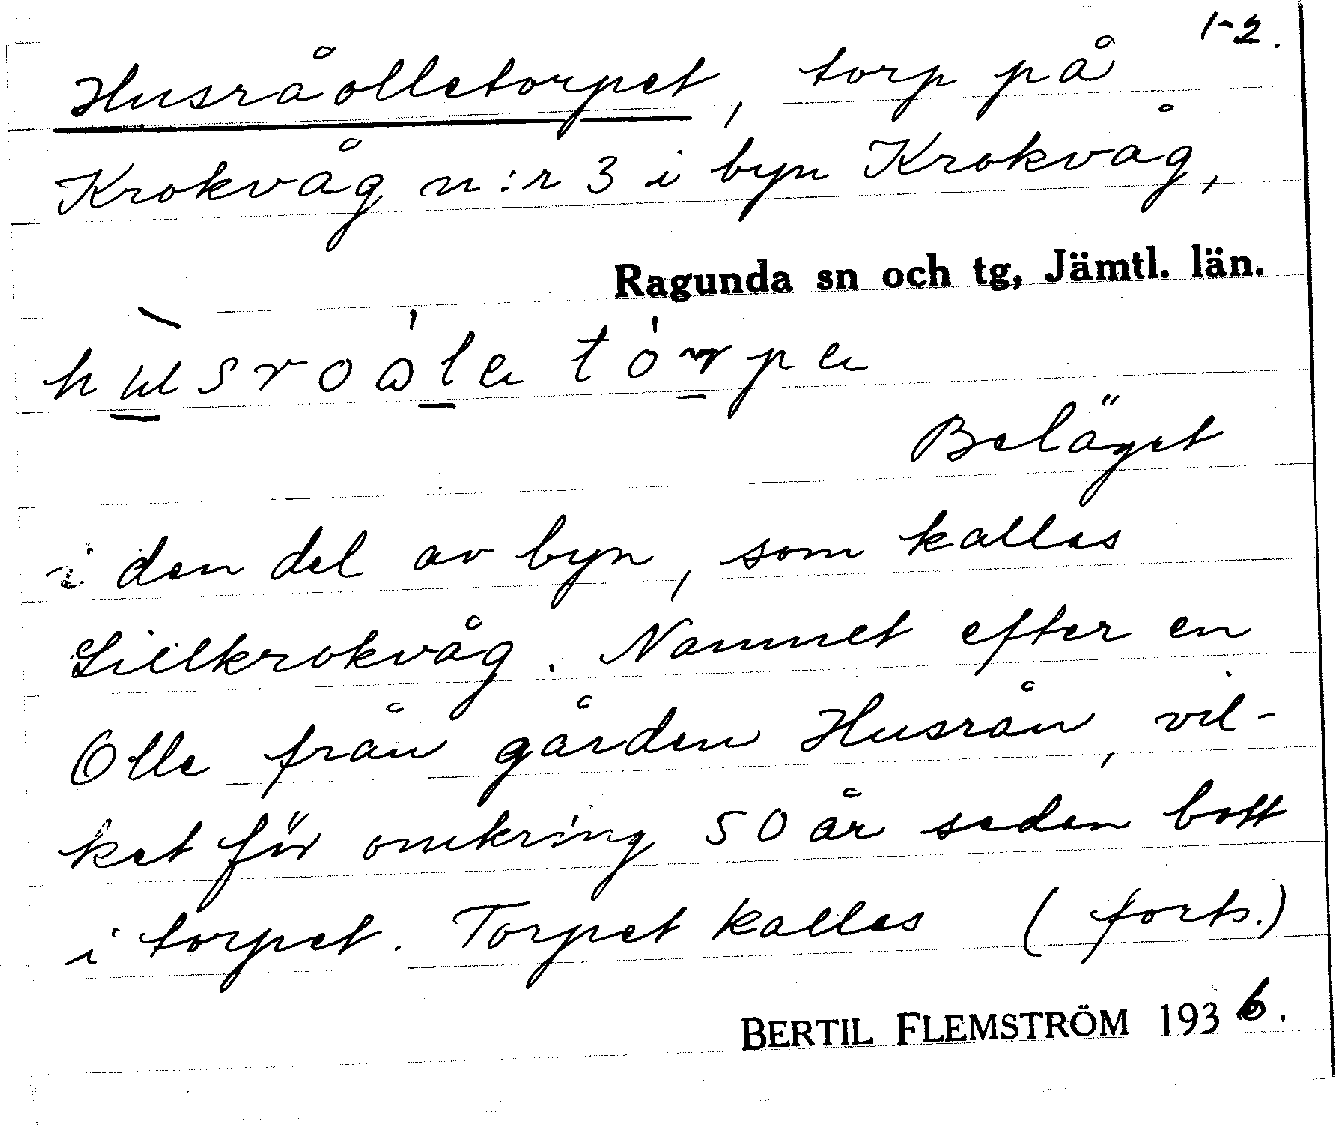 1-2.
Husråolletorpet, torp på
Krokvåg n:r 3 i byn Krokvåg,
Ragunda sn och tg, Jämtl. län.
Beläget
i den del av byn, som kallas
Lillkrokvåg. Namnet efter en
Olle från gården Husrån, vil-
ket för omkring 50 år sedan bott
i torpet. Torpet kallas (forts.)
BERTIL FLEMSTRÖM 1936.